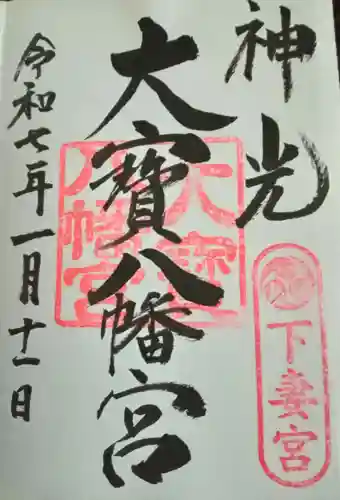 神光
下妻宮
大寳八幡宮
大寳八幡宮
令和七年一月十一日